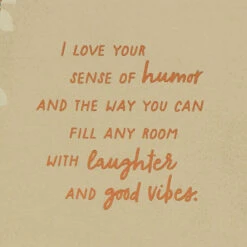 I LOVE YOUR
SENSE OF humor
AND THE WAY YOU CAN
FILL ANY ROOM
WITH laughter
AND good vibes.